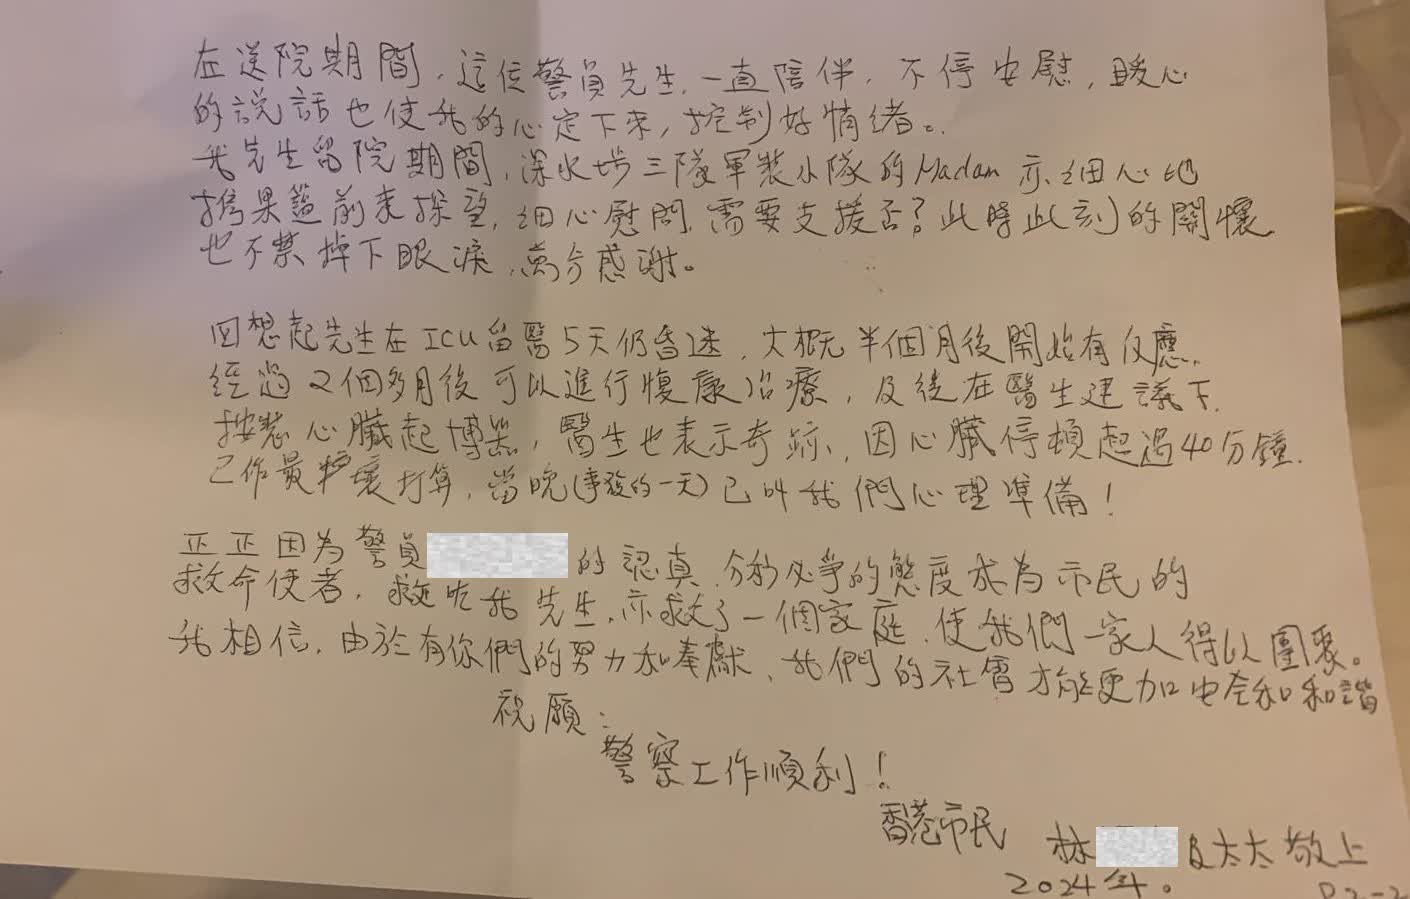 在送院期間，這位警員先生，一直陪伴，不停安慰，暖心
的說話也使我的心定下來，控制好情緒。
我先生留院期間，深水埗三隊軍裝小隊的Madam亦細心地
攜果籃前來探望，細心慰問，需要支援否？此時此刻的關懷
也不禁掉下眼淚，萬分感謝。
回想起先生在ICU留醫5天仍昏迷，大概半個月後開始有反應，
經過2個多月後可以進行復康治療，及後在醫生建議下，
按裝心臟起博器，醫生也表示奇跡，因心臟停頓超過40分鐘，
已作最壞打算，當晚(事發的一天)已叫我們心理準備！
正正因為警員 的認真，分秒必爭的態度成為市民的
救命使者，救了我先生，亦救了一個家庭，使我們一家人得以團聚。
我相信，由於有你們的努力和奉獻，我們的社會才能更加安全和和諧
祝願：
警察工作順利！
香港市民
林 及太太敬上
2024年。
P2-2